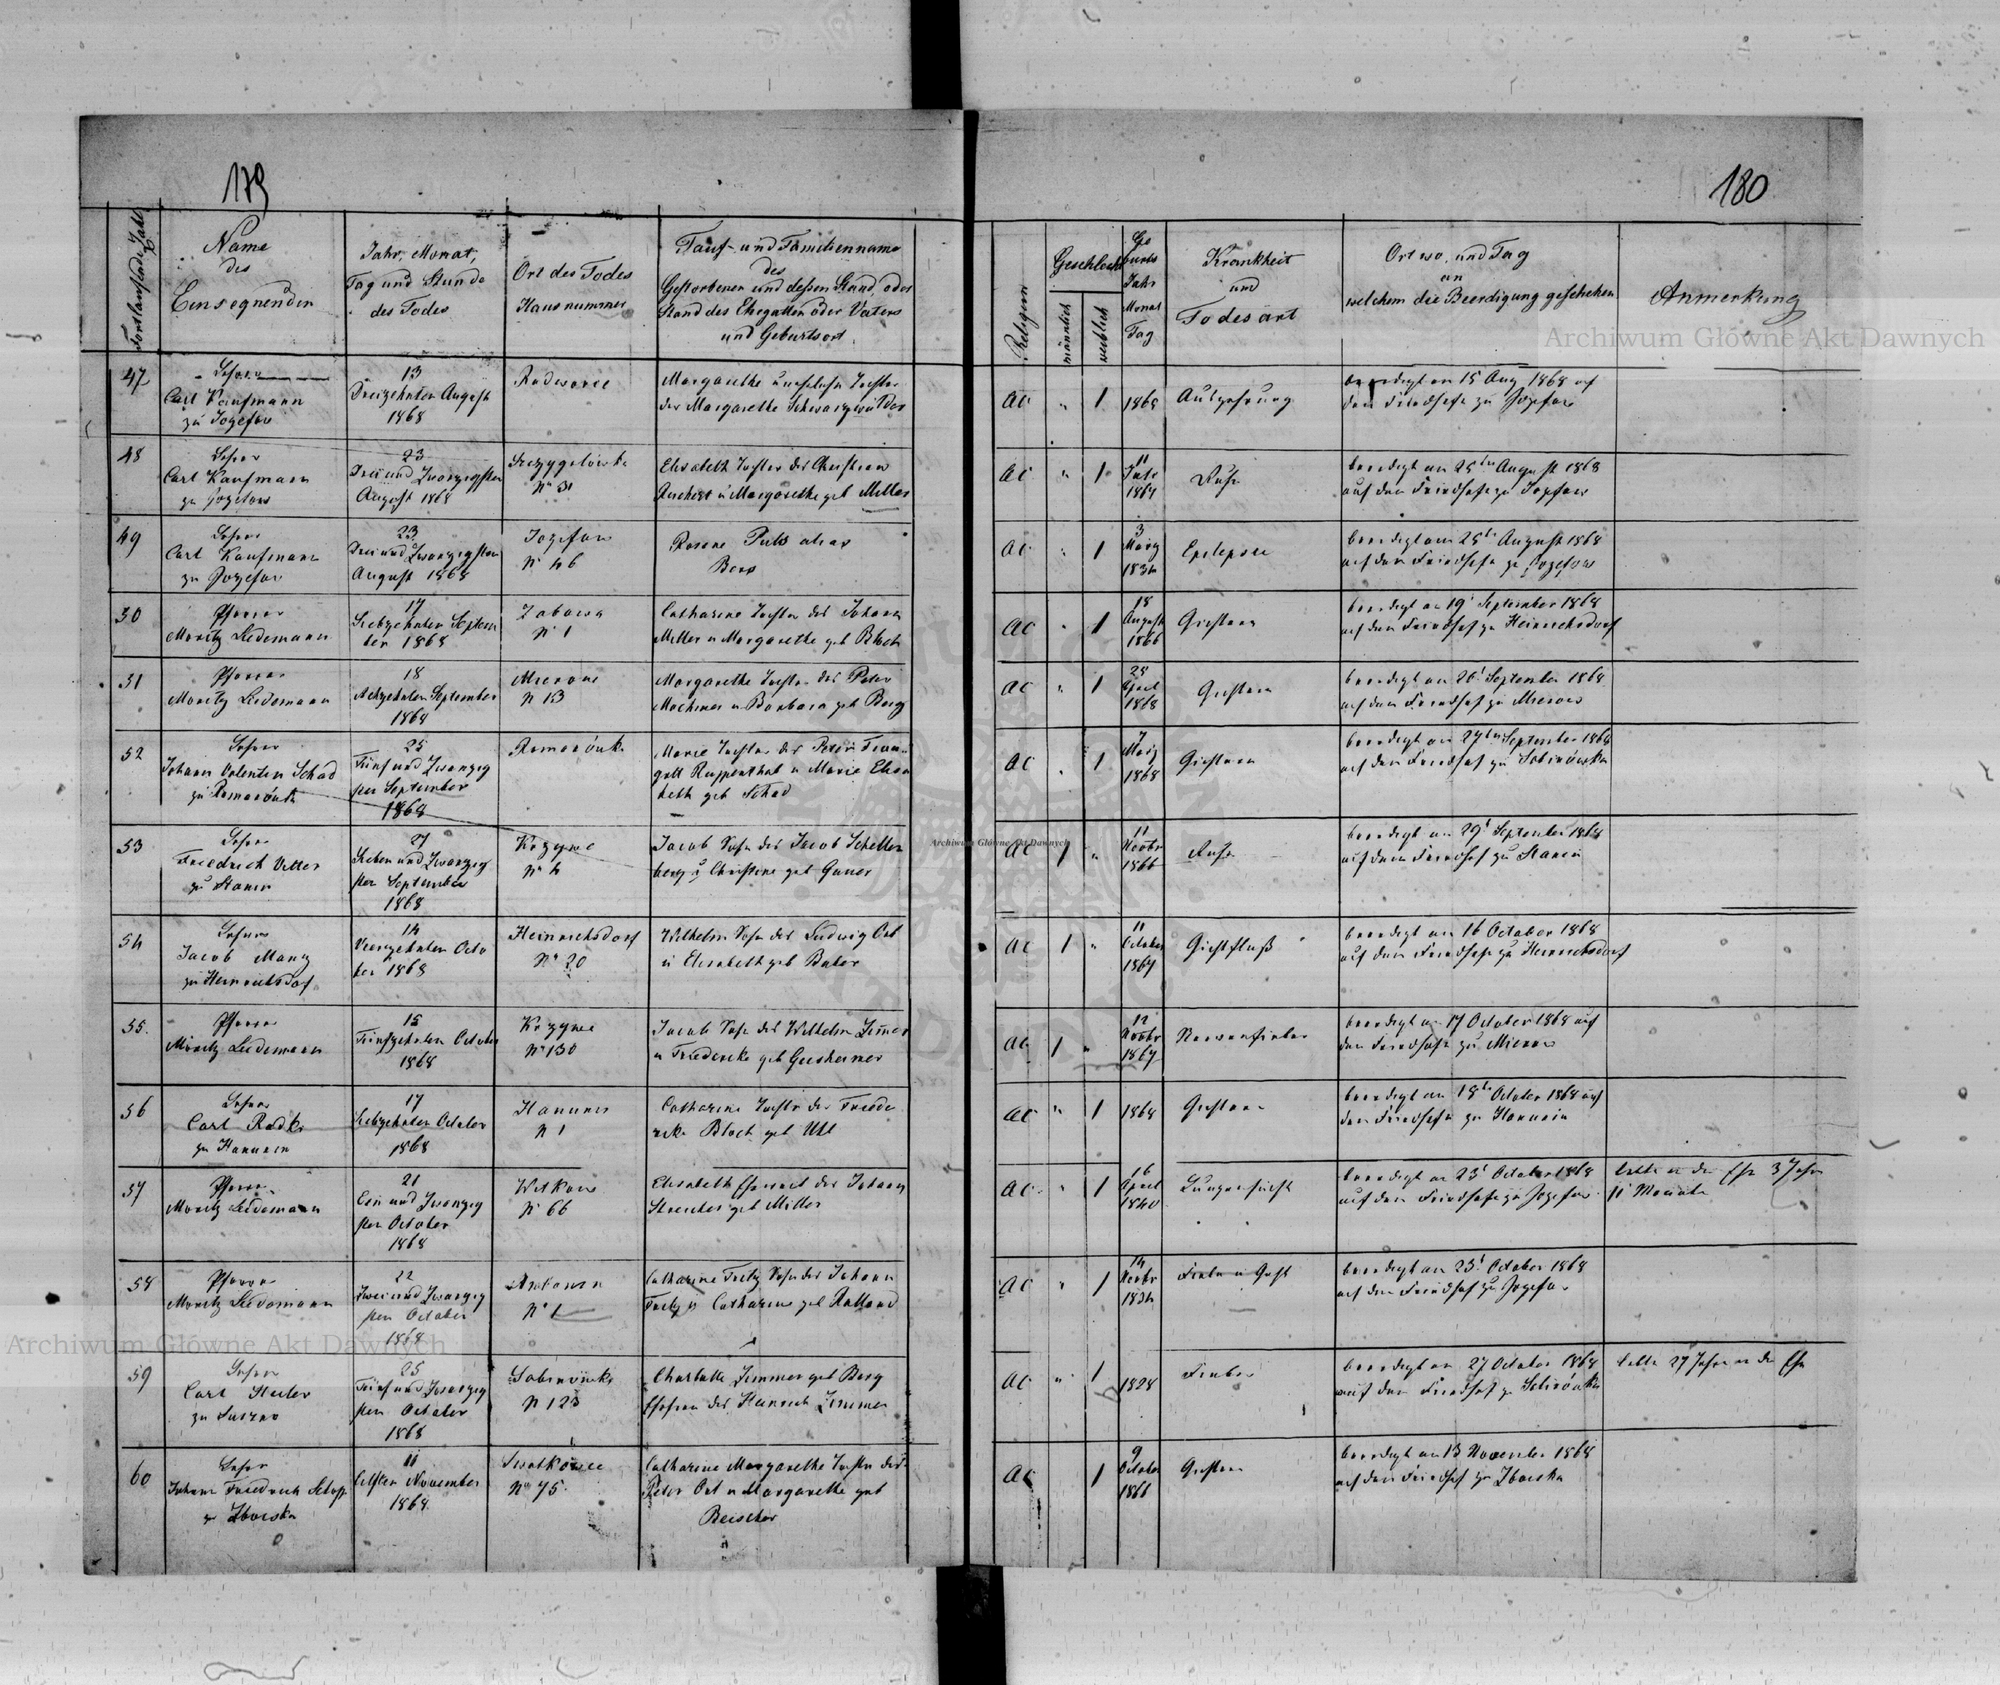 179
180
Fortlaufende Zahl
Name
des
Einsegnenden
Jahr, Monat,
Tag und Stunde
des Todes
Ort des Todes
Hausnummer
Tauf- und Familienname
des
Gestorbenen und dessen Stand, oder
Stand des Ehegatten oder Vaters
und Geburtsort.
Religion
Geschlecht
männlich
weiblich
Ge
burts
Jahr
Monat
Tag
Krankheit
und
Todesart
Ort wo, und Tag
an
welchem die Beerdigung geschehen
Anmerkung
Archiwum Główne Akt Dawnych
47
Lehrer
Carl Kaufmann
zu Jozefow
13
Dreizehnten August
1868
Radwance
Margarethe uneheliche Tochter
der Margarethe
AC " 1 1868
beerdigt am 15 Aug 1868 auf
dem Friedhofe zu Jozefow
48
Lehrer
Carl Kaufmann
zu Jozefow
23
Drei und Zwanzigsten
August 1868
No 31
Elisabeth Tochter des Christian
u Margarethe geb Miller
AC " 1
11
1867
Ruhr
beerdigt am 25ten August 1868
auf dem Friedhofe zu Jozefow
49
Lehrer
Carl Kaufmann
zu Jozefow
23
Drei und Zwanzigsten
August 1868
Jozefow
No 46
Rosene Puls alias
AC " 1
3
März
1834
Epilepsie
beerdigt am 25te August 1868
auf dem Friedhofe zu Jozefow
50
Pfarrer
Moritz Liedemann
17
Siebzehnten Septem
ber 1868
Zabawa
No 1
Catharine Tochter des Johann
Miller u Margarethe geb Bloch
AC " 1
18
August
1866
beerdigt am 19t September 1868
auf dem Friedhof zu Heinrichsdorf
51
Pfarrer
Moritz Liedemann
18
Achzehnten September
1868
Mierow
N 13
Margarethe Tochter des Peter
Machmer u Barbara geb Berg
AC " 1
25
April
1868
beerdigt am 20t September 1868
auf dem Friedhof zu Mierow
52
Lehrer
Johann Valentin Schad
zu Romanówka
25
Fünf und Zwanzig
sten September
1868
Romanówka
Marie Tochter des Peter
Ruppenthal u Marie Elisa
beth geb Schad
AC " 1
7
März
1868
beerdigt am 27ten September 1868
auf dem Friedhof zu Sabinówka
53
Lehrer
Friedrich Vetter
zu Stanin
27
Sieben und Zwanzig
sten September
1868
Krzywe
No 4
Jacob Sohn des Jacob Schellen
berg u Christine geb
AC 1 "
11
Novbr
1866
Ruhr
beerdigt am 29t September 1868
auf dem Friedhof zu Stanin
54
Lehrer
Jacob Mang
zu Heinrichsdorf
14
Vierzehnten Octo
ber 1868
Heinrichsdorf
No 20
Wilhelm Sohn des Ludwig Ort
u Elisabeth geb
AC 1 "
11
October
1867
Gichtfluß
beerdigt am 16 October 1868
auf dem Friedhofe zu Heinrichsdorf
55.
Pfarrer
Moritz Liedemann
15
Fünfzehnten October
1868
Krzywe
No 130
Jacob Sohn des Wilhelm Zimer
u Friedericke geb
AC 1 "
12
Novbr
1867
Nervenfieber
beerdigt am 17 October 1868 auf
dem Friedhofe zu Mierow
56
Lehrer
Carl Radke
zu Hanunin
17
Siebzehnten October
1868
Hanunin
N 1
Catharine Tochter der Friede
ricke Bloch geb Uhl
AC " 1 1868
beerdigt am 18te October 1868 auf
dem Friedhofe zu Hanunin
57
Pfarrer
Moritz Liedemann
21
Ein und Zwanzig
sten October
1868
Witkow
No 66
Elisabeth Eheweib des Johann
geb Miller
AC " 1
16
April
1840
Lungensucht
beerdigt am 23t October 1868
auf dem Friedhofe zu Jozefow
lebte in der Ehe 3 Jahre
11 Monate
58
Pfarrer
Moritz Liedemann
22
Zwei und Zwanzig
sten October
1868
Antonin
No 1
Catharine Fretz Sohn des Johann
Fretz u Catharine geb
AC " 1
14
Novbr
1834
beerdigt am 25t October 1868
auf dem Friedhof zu Jozefow
59
Lehrer
Carl
25
Fünf und Zwanzig
sten October
1868
Sabinówka
N 123
Charlotte Zimmer geb Berg
Ehefrau des Heinrich Zimmer
AC " 1 1828
Fieber
beerdigt am 27 October 1868
auf dem Friedhof zu Sabinówka
lebte 27 Jahre in der Ehe
60
Lehrer
Johann Friedrich
zu Zboiska
11
Eilften November
1868
No 75
Catharine Margarethe Tochter des
Peter Ort u Margarethe geb
AC 1
9
October
1866
beerdigt am 13 November 1868
auf dem Friedhof zu Zboiska
Archiwum Główne Akt Dawnych
Archiwum Główne Akt Dawnych